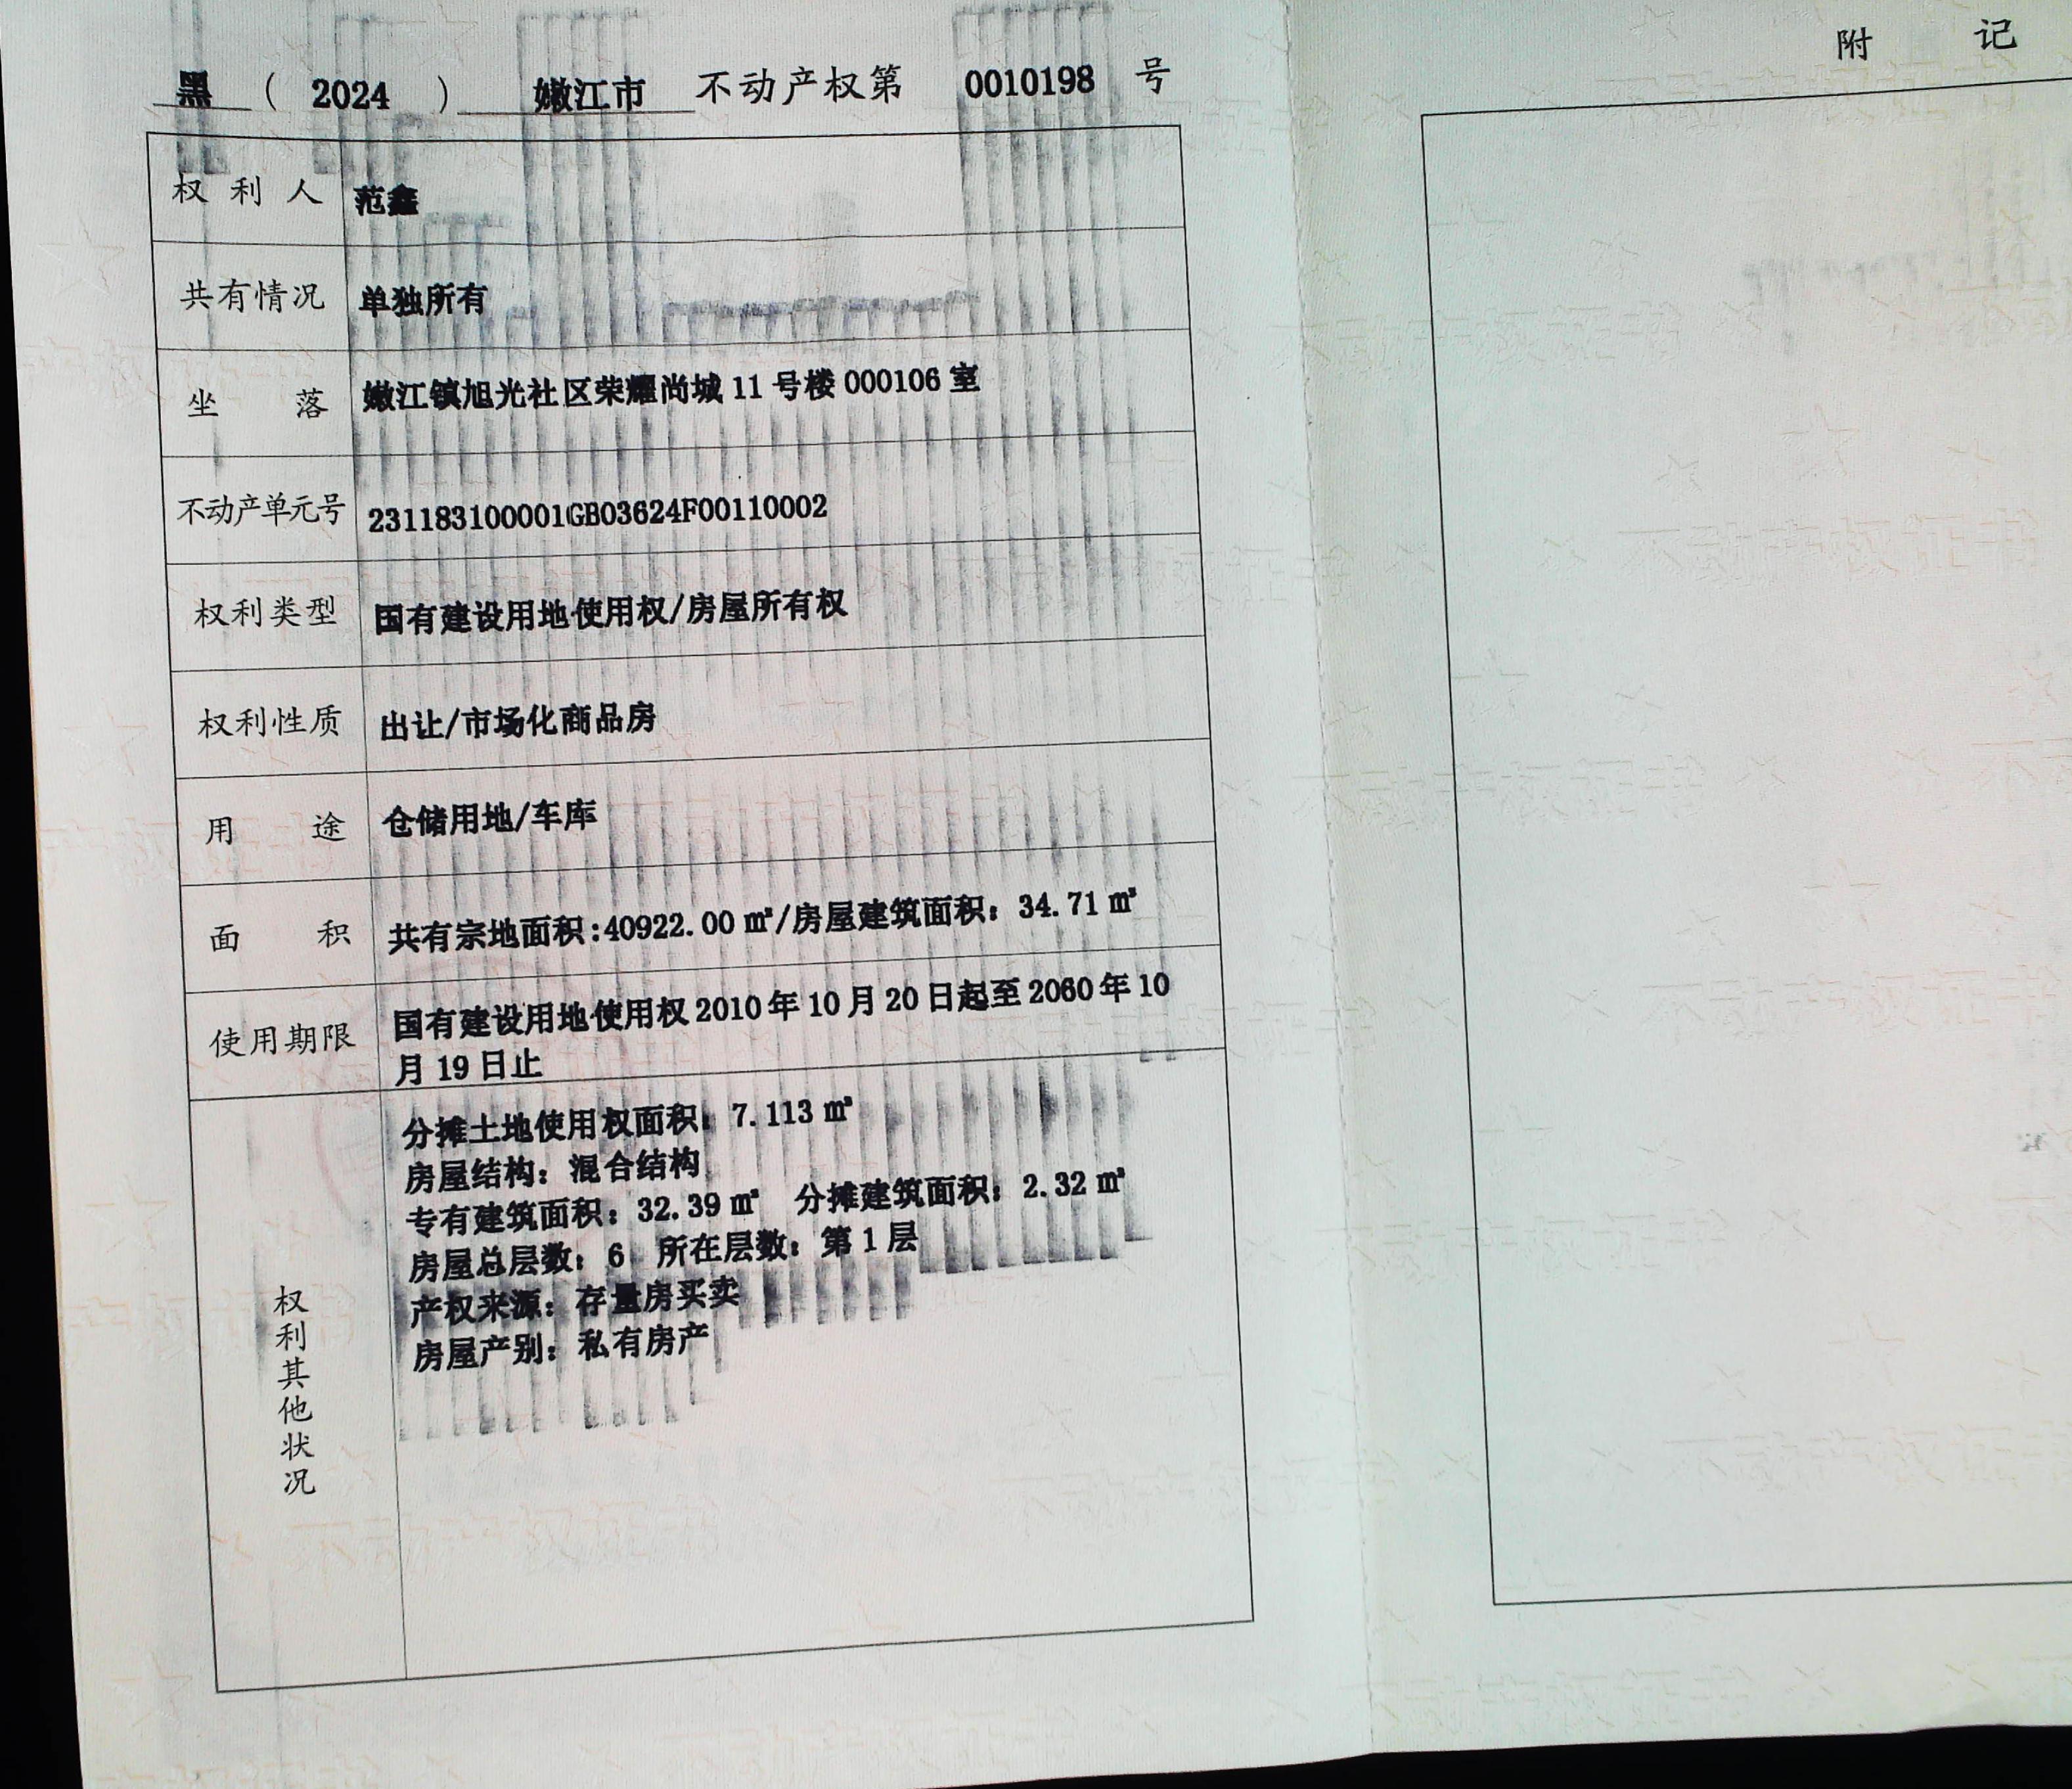 黑（2024）嫩江市 不动产权第 0010198 号
附 记
权利人 范鑫
共有情况 单独所有
坐落 嫩江镇旭光社区荣耀尚城 11 号楼 000106 室
不动产单元号 231183100001GB03624F00110002
权利类型 国有建设用地使用权/房屋所有权
权利性质 出让/市场化商品房
用途 仓储用地/车库
面积 共有宗地面积:40922.00 ㎡/房屋建筑面积：34.71 ㎡
使用期限 国有建设用地使用权 2010 年 10 月 20 日起至 2060 年 10
月 19 日止
权利其他状况
分摊土地使用权面积：7.113 ㎡
房屋结构：混合结构
专有建筑面积：32.39 ㎡ 分摊建筑面积：2.32 ㎡
房屋总层数：6 所在层数：第 1 层
产权来源：存量房买卖
房屋产别：私有房产